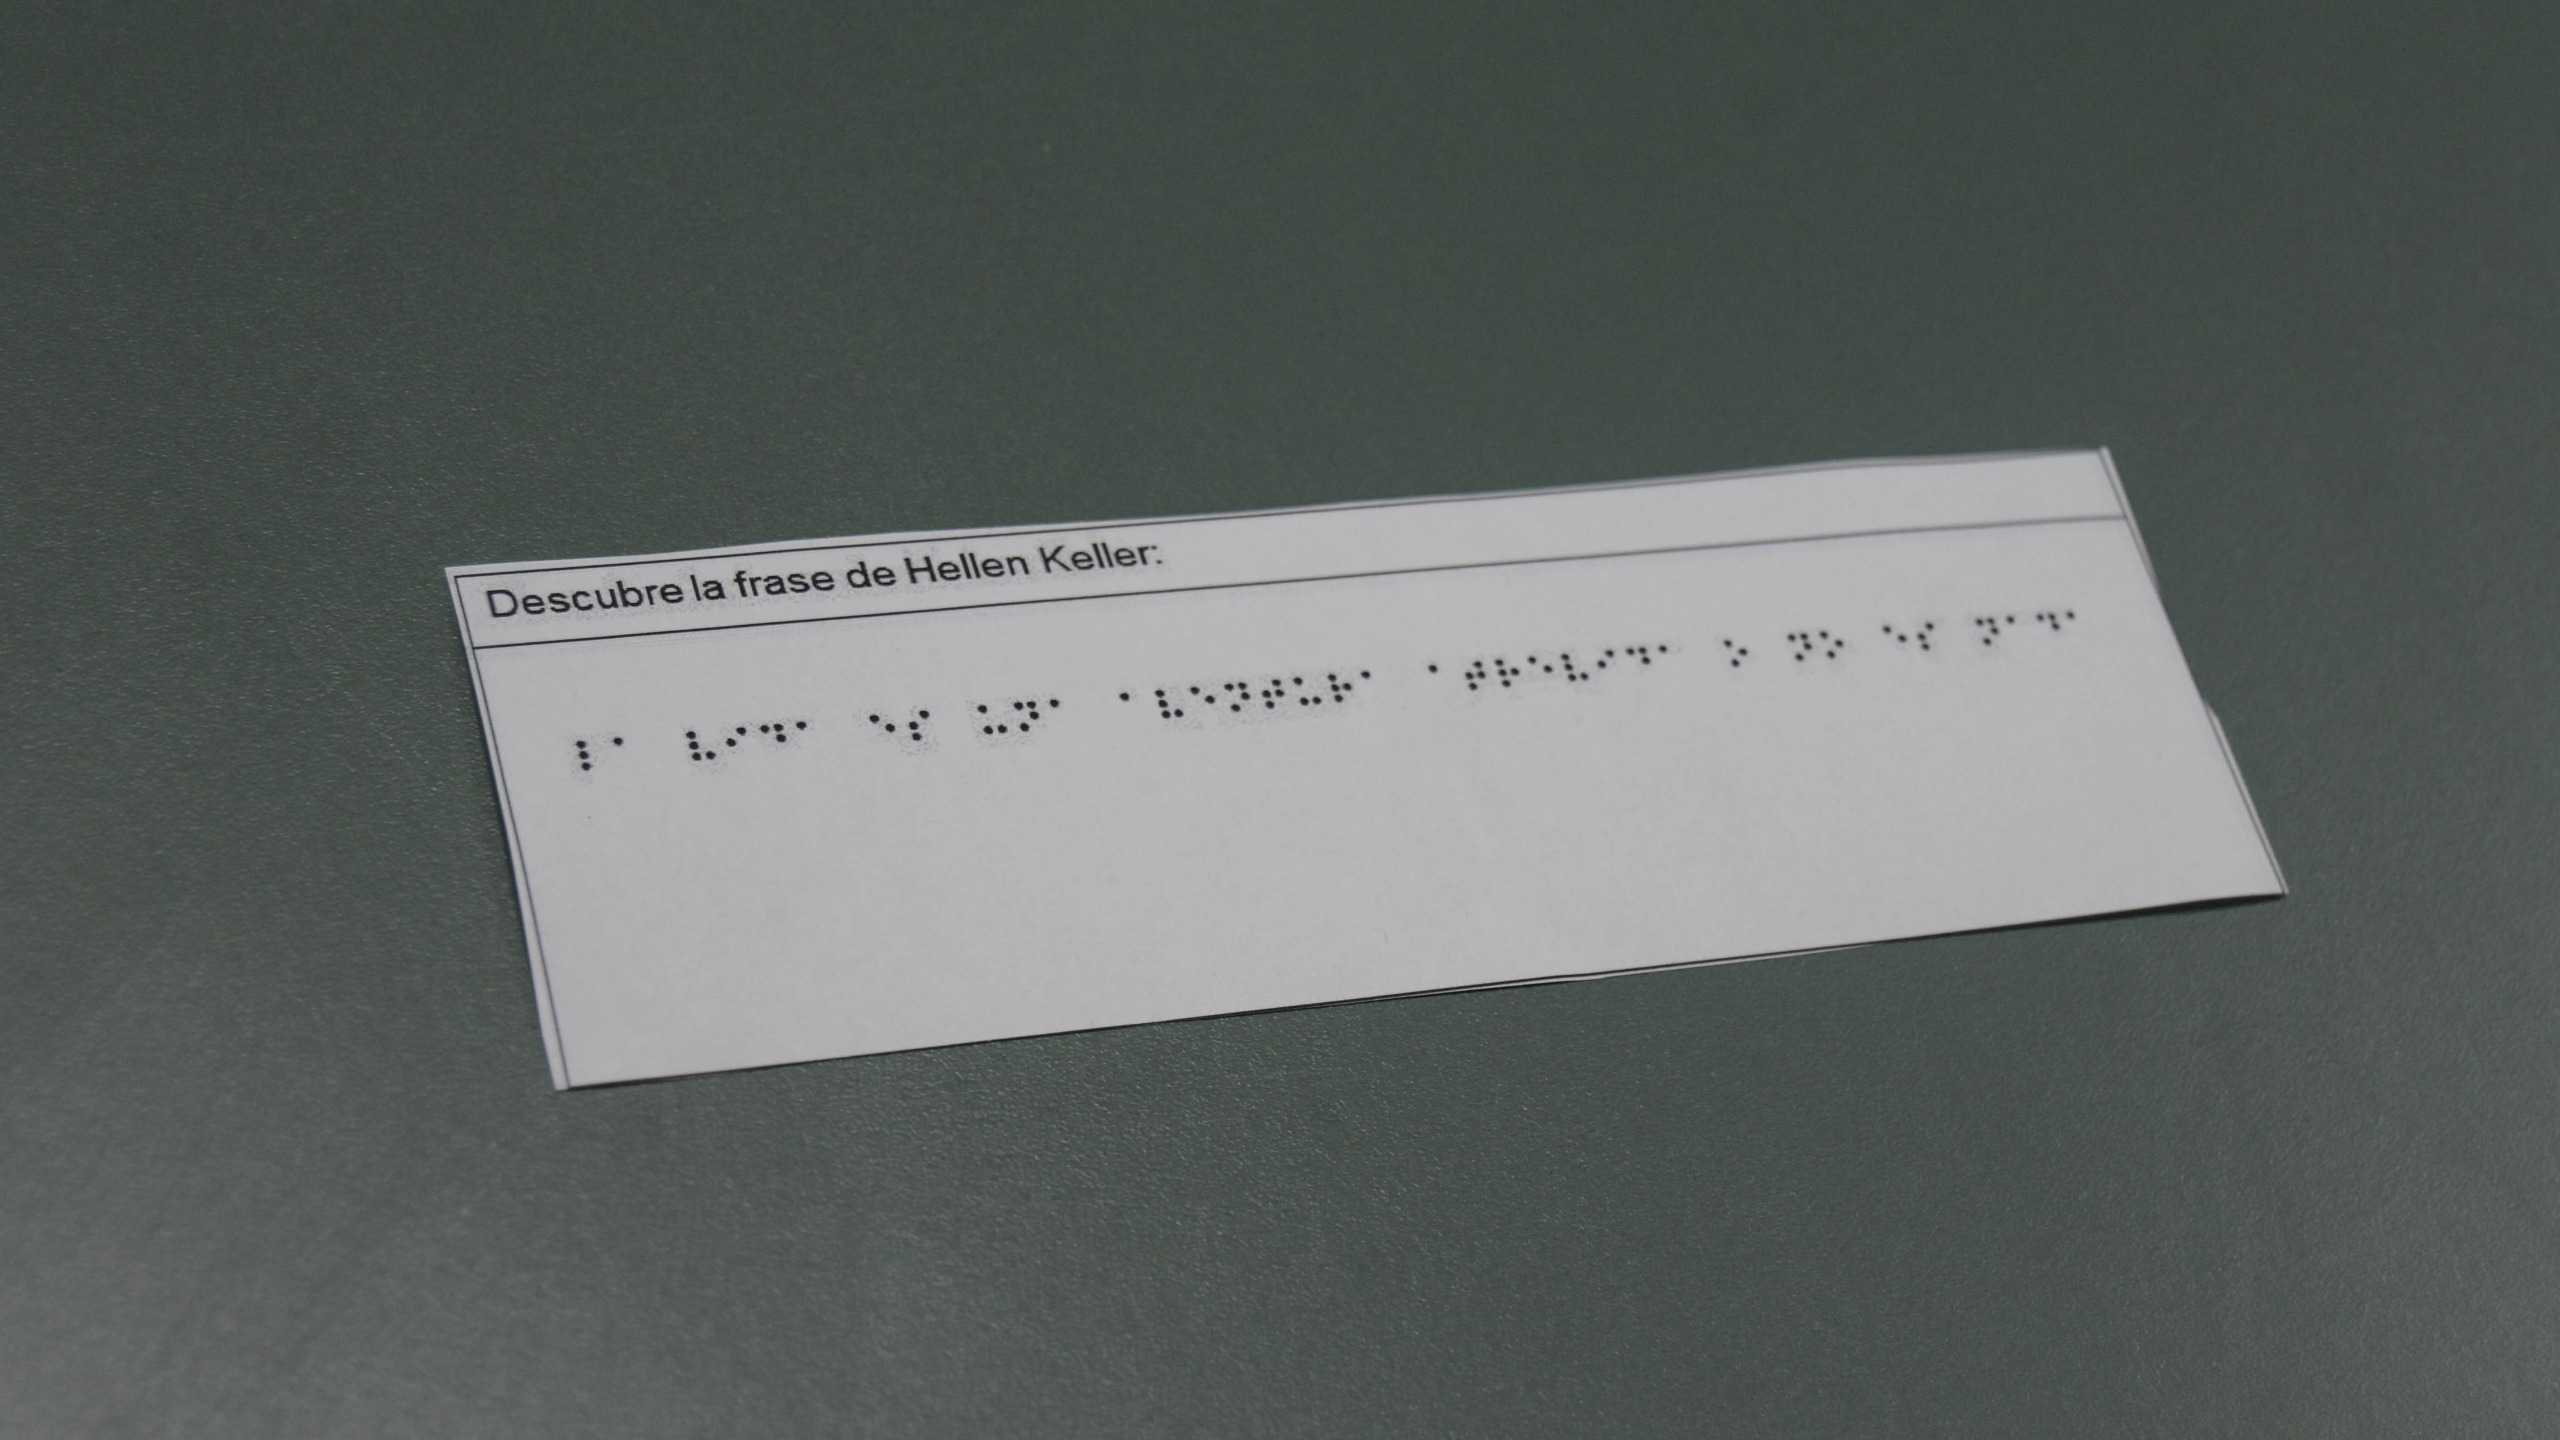 Descubre la frase de Hellen Keller:
⠇⠁ ⠧⠊⠙⠁ ⠑⠎ ⠥⠝⠁ ⠁⠧⠑⠝⠞⠥⠗⠁ ⠁⠞⠗⠑⠧⠊⠙⠁ ⠕ ⠝⠕ ⠑⠎ ⠝⠁⠙⠁